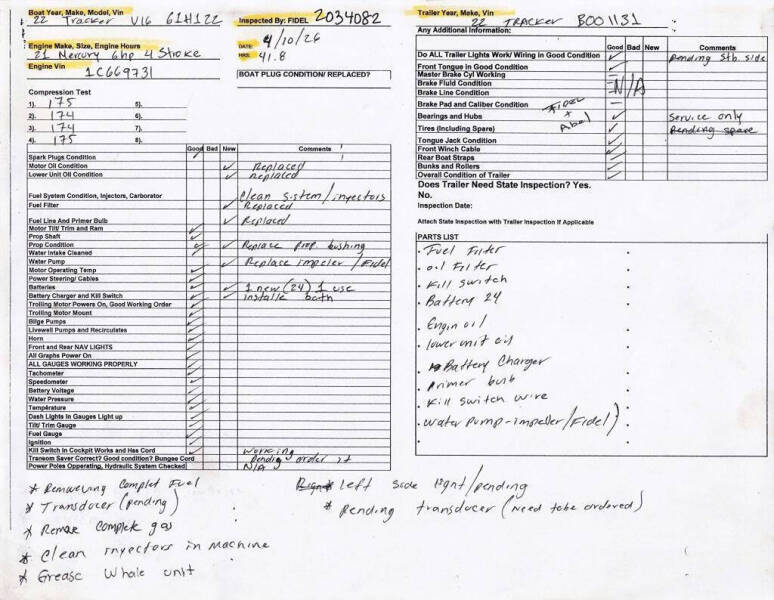 Boat Year, Make, Model, Vin
22 Tracker V16 61H122
Inspected By: FIDEL 2034082
Engine Make, Size, Engine Hours
21 Mercury 6hp 4 Stroke
DATE: 4/10/26
HRS: 41.8
Engine Vin
1C669731
BOAT PLUG CONDITION/ REPLACED?
Compression Test
1). 175 5).
2). 174 6).
3). 174 7).
4). 175 8).
Good Bad New Comments
Spark Plugs Condition
Motor Oil Condition Replaced
Lower Unit Oil Condition replaced
Fuel System Condition, Injectors, Carborator Clean sistem/injectors
Fuel Filter Replaced
Fuel Line And Primer Bulb Replaced
Motor Tilt/ Trim and Ram
Prop Shaft
Prop Condition Replace prop. bushing
Water Intake Cleaned
Water Pump Replace impeler /Fidel
Motor Operating Temp
Power Steering/ Cables
Batteries 1 new (24) 1 use
Battery Charger and Kill Switch installe both
Trolling Motor Powers On, Good Working Order
Trolling Motor Mount
Bilge Pumps
Livewell Pumps and Recirculates
Horn
Front and Rear NAV LIGHTS
All Graphs Power On
ALL GAUGES WORKING PROPERLY
Tachometer
Speedometer
Battery Voltage
Water Pressure
Temperature
Dash Lights In Gauges Light up
Tilt/ Trim Gauge
Fuel Gauge
Ignition
Kill Switch In Cockpit Works and Has Cord working
Transom Saver Correct? Good condition? Bungee Cord Pending order it
Power Poles Opperating, Hydraulic System Checked N/A
* Remaveing Complet Fuel
* Transducer (pending)
* Remove Complete gas
* Clean inyectors in machine
* Grease Whale unit
Trailer Year, Make, Vin
22 TRACKER B001131
Any Additional Information:
Good Bad New Comments
Do ALL Trailer Lights Work/ Wiring in Good Condition Pending Stb. side
Front Tongue in Good Condition
Master Brake Cyl Working
Brake Fluid Condition N/A
Brake Line Condition
Brake Pad and Caliber Condition
FIDEL + Abel
Bearings and Hubs Service only
Tires (Including Spare) Pending spare
Tongue Jack Condition
Front Winch Cable
Rear Boat Straps
Bunks and Rollers
Overall Condition of Trailer
Does Trailer Need State Inspection? Yes.
No.
Inspection Date:
Attach State Inspection with Trailer Inspection If Applicable
PARTS LIST
. Fuel Filter
. oil Filter
. Kill switch
. Battery 24
. Engin oil
. lower unit oil
. Battery Charger
. primer bulb
. Kill switch wire
. Water Pump-impeller/Fidel)
* Left side light/pending
* Pending transducer (need to be ordered)